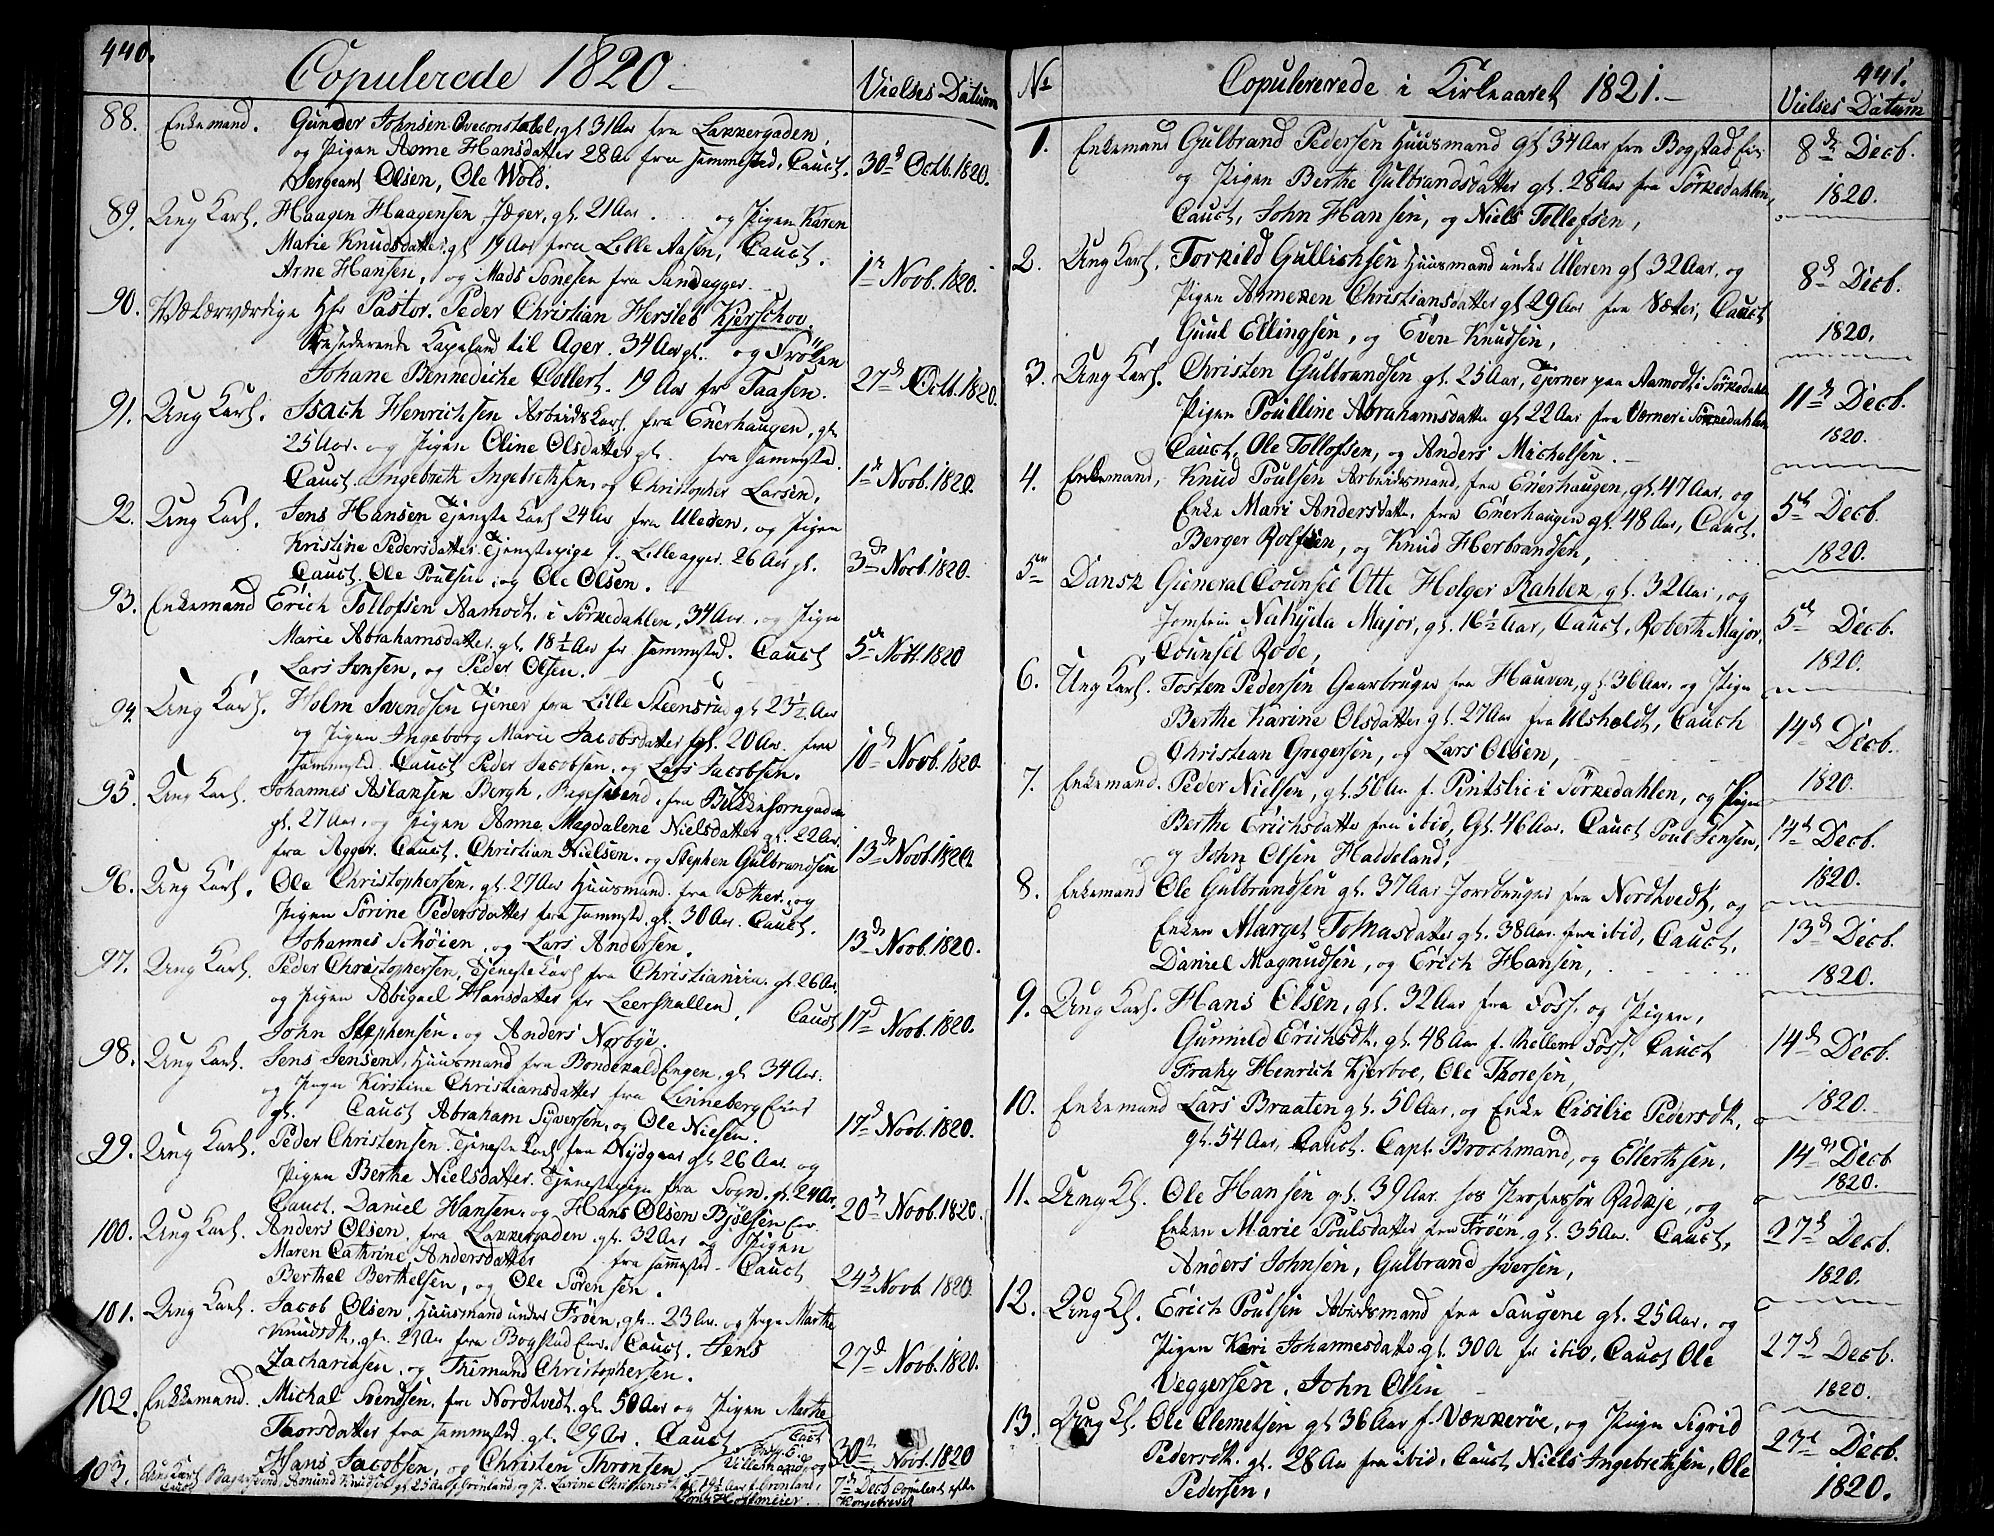 440.
Copulerede 1820.
Vielses Datum
88. Enkemand. Gunder Johnsen Oveconstabel, gl. 31 Aar fra Lakkergaden,
og Pigen Anne Hansdatter 28 Aar fra sammested, Cauct. 30 Octb. 1820.
Sergeant Olsen, Ole Wold.
89. Ung Karl. Haagen Haagensen Jæger, gl. 21 Aar. og Pigen Karen
Marie Knudsdatter gl. 19 Aar fra Lille Aasen, Cauct.
Arne Hansen, og Mads Sonesen fra Sandagger. 1 Novb. 1820.
90. Velærværdige Hr Pastor. Peder Christian Hersleb Kjerschov
Residerende Kapeland til Ager. 34 Aar gl. og Frøken
Johane Bennediche Collert. 19 Aar fr Taasen. 27 Octb. 1820.
91. Ung Karl. Isach Henrichsen Arbeidskarl. fra Enerhaugen, gl.
25 Aar. og Pigen Oline Olsdatter gl. fra sammested.
Cauct. Ingebreth Ingebrethsen, og Christopher Larsen. 1 Novb. 1820.
92. Ung Karl. Jens Hansen Tjeneste Karl 24 Aar fra Ulesen, og Pigen
Kristine Pedersdatter Tjenestepige i Lilleagger. 26 Aar gl.
Cauct. Ole Poulsen, og Ole Olsen. 3 Novb. 1820.
93. Enkemand Erich Tollofsen Aamodt. i Sørkedahlen, 34 Aar. og Pigen
Marie Abrahamsdatter gl. 18½ Aar fr sammested. Cauct
Lars Jensen, og Peder Olsen. 5 Novb. 1820
94. Ung Karl. Holm Svendsen Tjener fra Lille Steensrud gl 23½ Aar
og Pigen Ingeborg Marie Jacobsdatter gl. 20 Aar. fra
sammested. Cauct Peder Jacobsen, og Lars Jacobsen. 10 Novb. 1820.
95. Ung Karl. Johannes Aslansen Bergh, fra
gl. 27 Aar, og Pigen Anne Magdalene Nielsdatter gl. 22 Aar.
fra Agger. Cauct. Christian Nielsen. og Stephen Gulbrandsen 13 Novb. 1820.
96. Ung Karl. Ole Christophersen, gl. 27 Aar Huusmand fra og
Pigen Sørine Pedersdatter fra sammested. gl. 30 Aar. Cauct.
Johannes Schøien, og Lars Andersen. 13 Novb. 1820.
97. Ung Karl. Peder Christophersen, Tjeneste Karl fra Christiania. gl. 26 Aar.
og Pigen Abigael Hansdatter fr Leerskallen, Cauct
John Stephensen, og Anders Norbye. 17 Novb. 1820.
98. Ung Karl. Jens Jensen, Huusmand fra Engen, gl 34 Aar.
og Pigen Kirstine Christiansdatter fra Linneberg Eier
gl. Cauct Abraham Syversen, og Ole Nielsen. 17 Novb. 1820.
99. Ung Karl. Peder Christensen Tjeneste Karl fra Nydgaar gl 26 Aar. og
Pigen Berthe Nielsdatter Tjenestepige fra Sogn. gl. 24 Aar.
Cauct. Daniel Hansen, og Hans Olsen Bjølsen Eier. 20 Novb. 1820.
100. Ung Karl. Anders Olsen, fra Lakkergaden gl. 32 Aar og Pigen
Maren Cathrine Andersdatter fra sammested - Cauct
Berthel Berthelsen, og Ole Sørensen. 24 Novb. 1820
101. Ung Karl. Jacob Olsen, Huusmand under Frøen, gl. 23 Aar. og Pige Marthe
Knudsdt. gl. 23 Aar fra Bogstad Eier. Cauct. Jens
Zachariasen, og Thimand Christophersen. 27 Novb. 1820.
102. Enkemand. Michal Svendsen, fra Nordtvedt. gl. 50 Aar og Pigen Marthe
Thorsdatter fra sammested. gl. 29 Aar. Cauct
Hans Jacobsen, og Christen Thronsen. 30 Novb. 1820
103. Ung Karl Asmund Knudsen gl 25 Aar f. Grønland, og P. Larine Christensdt. gl 19½ Aar f. Grønland, 7 Decb copulert efter
Cauct
Kongebrevet
441.
No Copulererede i Kirkeaaret 1821.
Vielses Datum
1. Enkemand Gulbrand Pedersen Huusmand gl 34 Aar fra Bogstad Eier 8 Decb.
og Pigen Berthe Gulbrandsdatter gl. 28 Aar fra Sørkedahlen, 1820.
Cauct, John Hansen, og Niels Tollefsen,
2. Ung Karl. Torkild Gullichsen Huusmand under Uleren gl 32 Aar, og 8 Decb.
Pigen Anneken Christiansdatter gl 29 Aar fra Sæter, Cauct
Guul Ellingsen, og Even Knudsen, 1820.
3. Ung Karl. Christen Gulbrandsen gl. 25 Aar, Tjerner paa Aamodt i Sørkedahlen 11 Decb.
Pigen Poulline Abrahamsdatter gl 22 Aar fra Værner i Sørkedahlen 1820.
Cauct, Ole Tollofsen, og Anders Michelsen.
4. Enkemand, Knud Poulsen Arbeidsmand, fra Enerhaugen, gl. 47 Aar, og
Enke Mari Andersdatter, fra Enerhaugen gl. 48 Aar, Cauct. 5 Decb.
Berger Rolfsen, og Knud Herbrandsen, 1820.
5 Dansk Gieneral Counsel Otte Holger Rahbek, gl. 32 Aar, og
Jomfru Nahyda Major, gl. 16½ Aar, Cauct, Roberth Major, 5 Decb.
Counsel Rode, 1820.
6. Ung Karl. Tosten Pedersen Gaarbruger fra Hauven, gl. 36 Aar, og Pigen
Berthe Karine Olsdatter gl. 27 Aar fra Ulsholdt, Cauct 14 Decb.
Christian Gregersen, og Lars Olsen,
7. Enkemand. Peder Nielsen, gl. 50 Aar f. Pintslie i Sørkedahlen, og Pigen 1820.
Berthe Erichsdatter fra ibid, Gl. 46 Aar. Cauct Poul Jensen, 14 Decb.
og John Olsen Haddeland, 1820.
8. Enkemand Ole Gulbrandsen gl. 37 Aar Jordbruger fra Nordtvedt, og
Enken Marget Tomasdatter gl. 38 Aar. fra ibid, Cauct, 13 Decb.
Daniel Magnudsen, og Erich Hansen, 1820.
9. Ung Karl. Hans Olsen, gl. 32 Aar fra Foss. og Pigen,
Gunnild Erichsdt. gl. 48 Aar f. Mellem Foss, Cauct 14 Decb.
Frahy Henrich Kjerboe, Ole Thoresen,
10. Enkemand Lars Braaten gl. 50 Aar, og Enke Cisilie Pedersdt. 1820.
gl. 54 Aar, Cauct. Capt. Brochmand, og Ellerthsen, 14 Decb
11. Ung Kl. Ole Hansen gl. 39 Aar. hos Professor Radkje, og 1820.
Enken Marie Poulsdatter fra Frøen, gl. 35 Aar. Cauct, 27 Decb.
Anders Johnsen, Gulbrand Iversen, 1820.
12. Ung Kl. Erich Poulsen Arbeidsmand fra Saugene gl. 25 Aar, og
Pigen Kari Johannesdatter gl. 30 A fr ibid, Cauct Ole 27 Decb.
Veggersen, John Olsen 1820.
13. Ung Kl. Ole Clemetsen gl 36 Aar f. Vækkerøe, og Pigen Sigrid 23 Decb.
Pedersdt. gl. 28 Aar fra ibid, Cauct Niels Ingebrethsen, Ole
Pedersen, 1820.